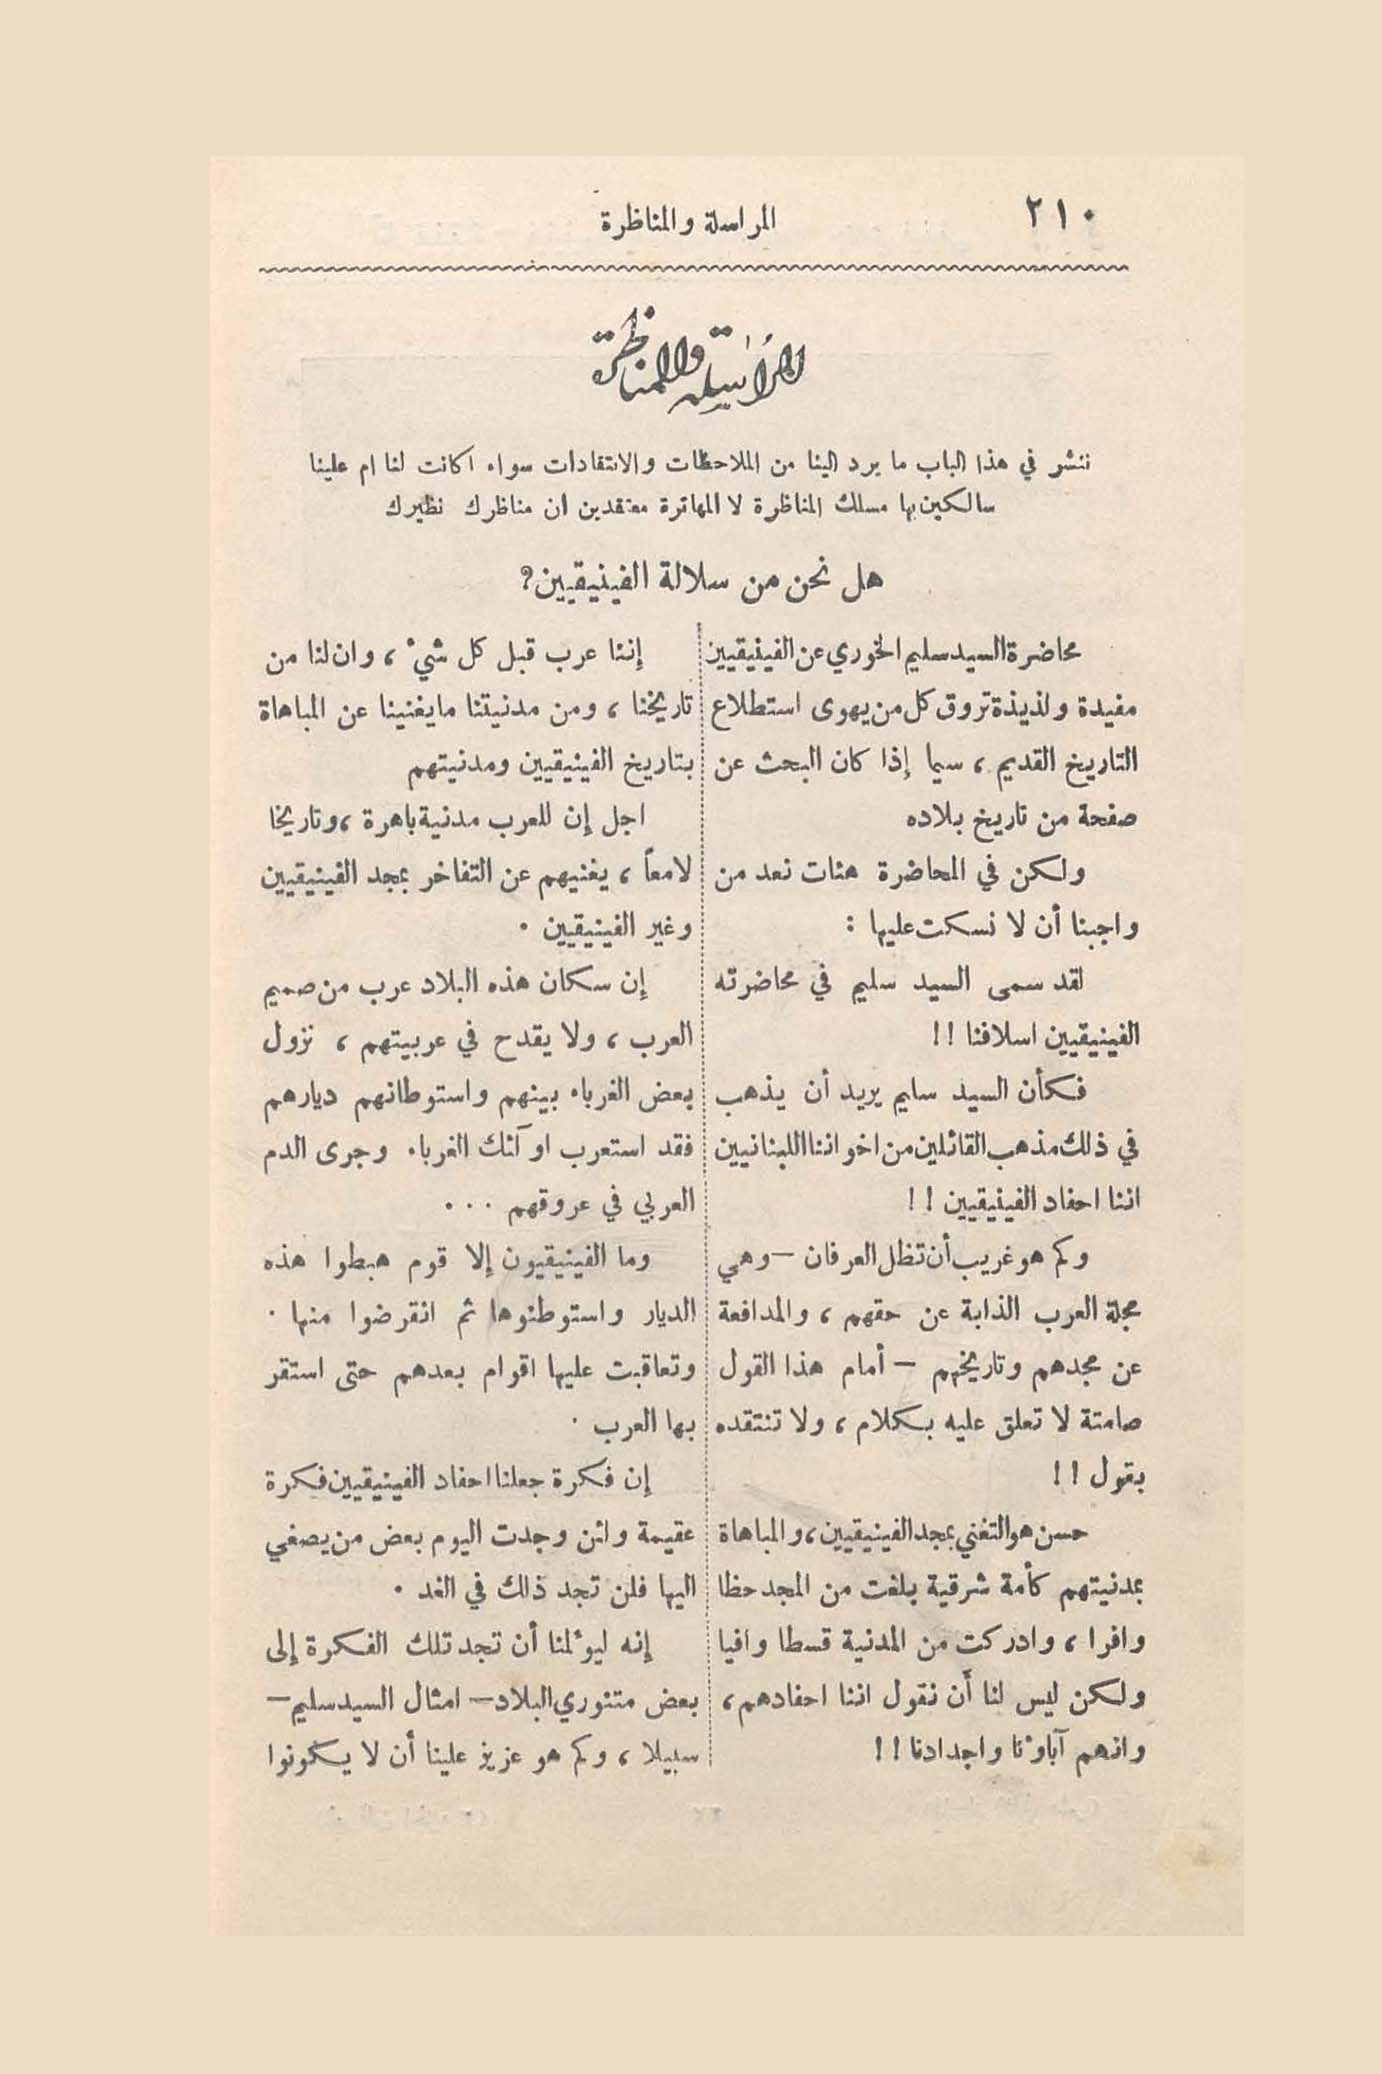 ٢١٠
المراسلة والمناظرة
المراسلة والمناظرة
ننشر في هذا الباب ما يرد الينا من الملاحظات والانتقادات سواء اكانت لنا ام علينا
سالكين بها مسلك المناظرة لا المهاترة معتقدين ان مناظرك نظيرك
هل نحن من سلالة الفينيقيين؟
محاضرة السيد سليم الخوري عن الفينيقيين
مفيدة ولذيذة تروق كل من يهوى استطلاع
التاريخ القديم، سيما إذا كان البحث عن
صفحة من تاريخ بلاده
ولكن في المحاضرة هنات نعد من
واجبنا أن لا نسكت عليها :
لقد سمى السيد سليم في محاضرته
الفينيقيين اسلافنا !!
فكأن السيد سليم يريد أن يذهب
في ذلك مذهب القائلين من اخواننا اللبنانيين
اننا احفاد الفينيقيين !!
وكم هو غريب أن تظل العرفان – وهي
مجلة العرب الذابة عن حقهم، والمدافعة
عن مجدهم وتاريخهم – أمام هذا القول
صامتة لا تعلق عليه بكلام، ولا تنتقده
بقول !!
حسن هو التغني بمجد الفينيقيين، والمباهاة
بمدنيتهم كأمة شرقية بلغت من المجد حظا
وافرا، وادركت من المدنية قسطا وافيا
ولكن ليس لنا أن نقول اننا احفادهم،
وانهم آباؤنا واجدادنا !!
إننا عرب قبل كل شيء، وان لنا من
تاريخنا، ومن مدنيتنا ما يغنينا عن المباهاة
بتاريخ الفينيقيين ومدنيتهم
اجل إن للعرب مدنية باهرة، وتاريخا
لامعاً، يغنيهم عن التفاخر بمجد الفينيقيين
وغير الفينيقيين .
إن سكان هذه البلاد عرب من صميم
العرب، ولا يقدح في عربيتهم، نزول
بعض الغرباء بينهم واستوطانهم ديارهم
فقد استعرب اولئك الغرباء وجرى الدم
العربي في عروقهم ...
وما الفينيقيون إلا قوم هبطوا هذه
الديار واستوطنوها ثم انقرضوا منها .
وتعاقبت عليها اقوام بعدهم حتى استقر
بها العرب .
إن فكرة جعلنا احفاد الفينيقيين فكرة
عقيمة ولئن وجدت اليوم بعض من يصغي
اليها فلن تجد ذلك في الغد .
إنه ليؤلمنا أن تجد تلك الفكرة إلى
بعض متنوري البلاد – امثال السيد سليم –
سبيلا، وكم هو عزيز علينا أن لا يكونوا